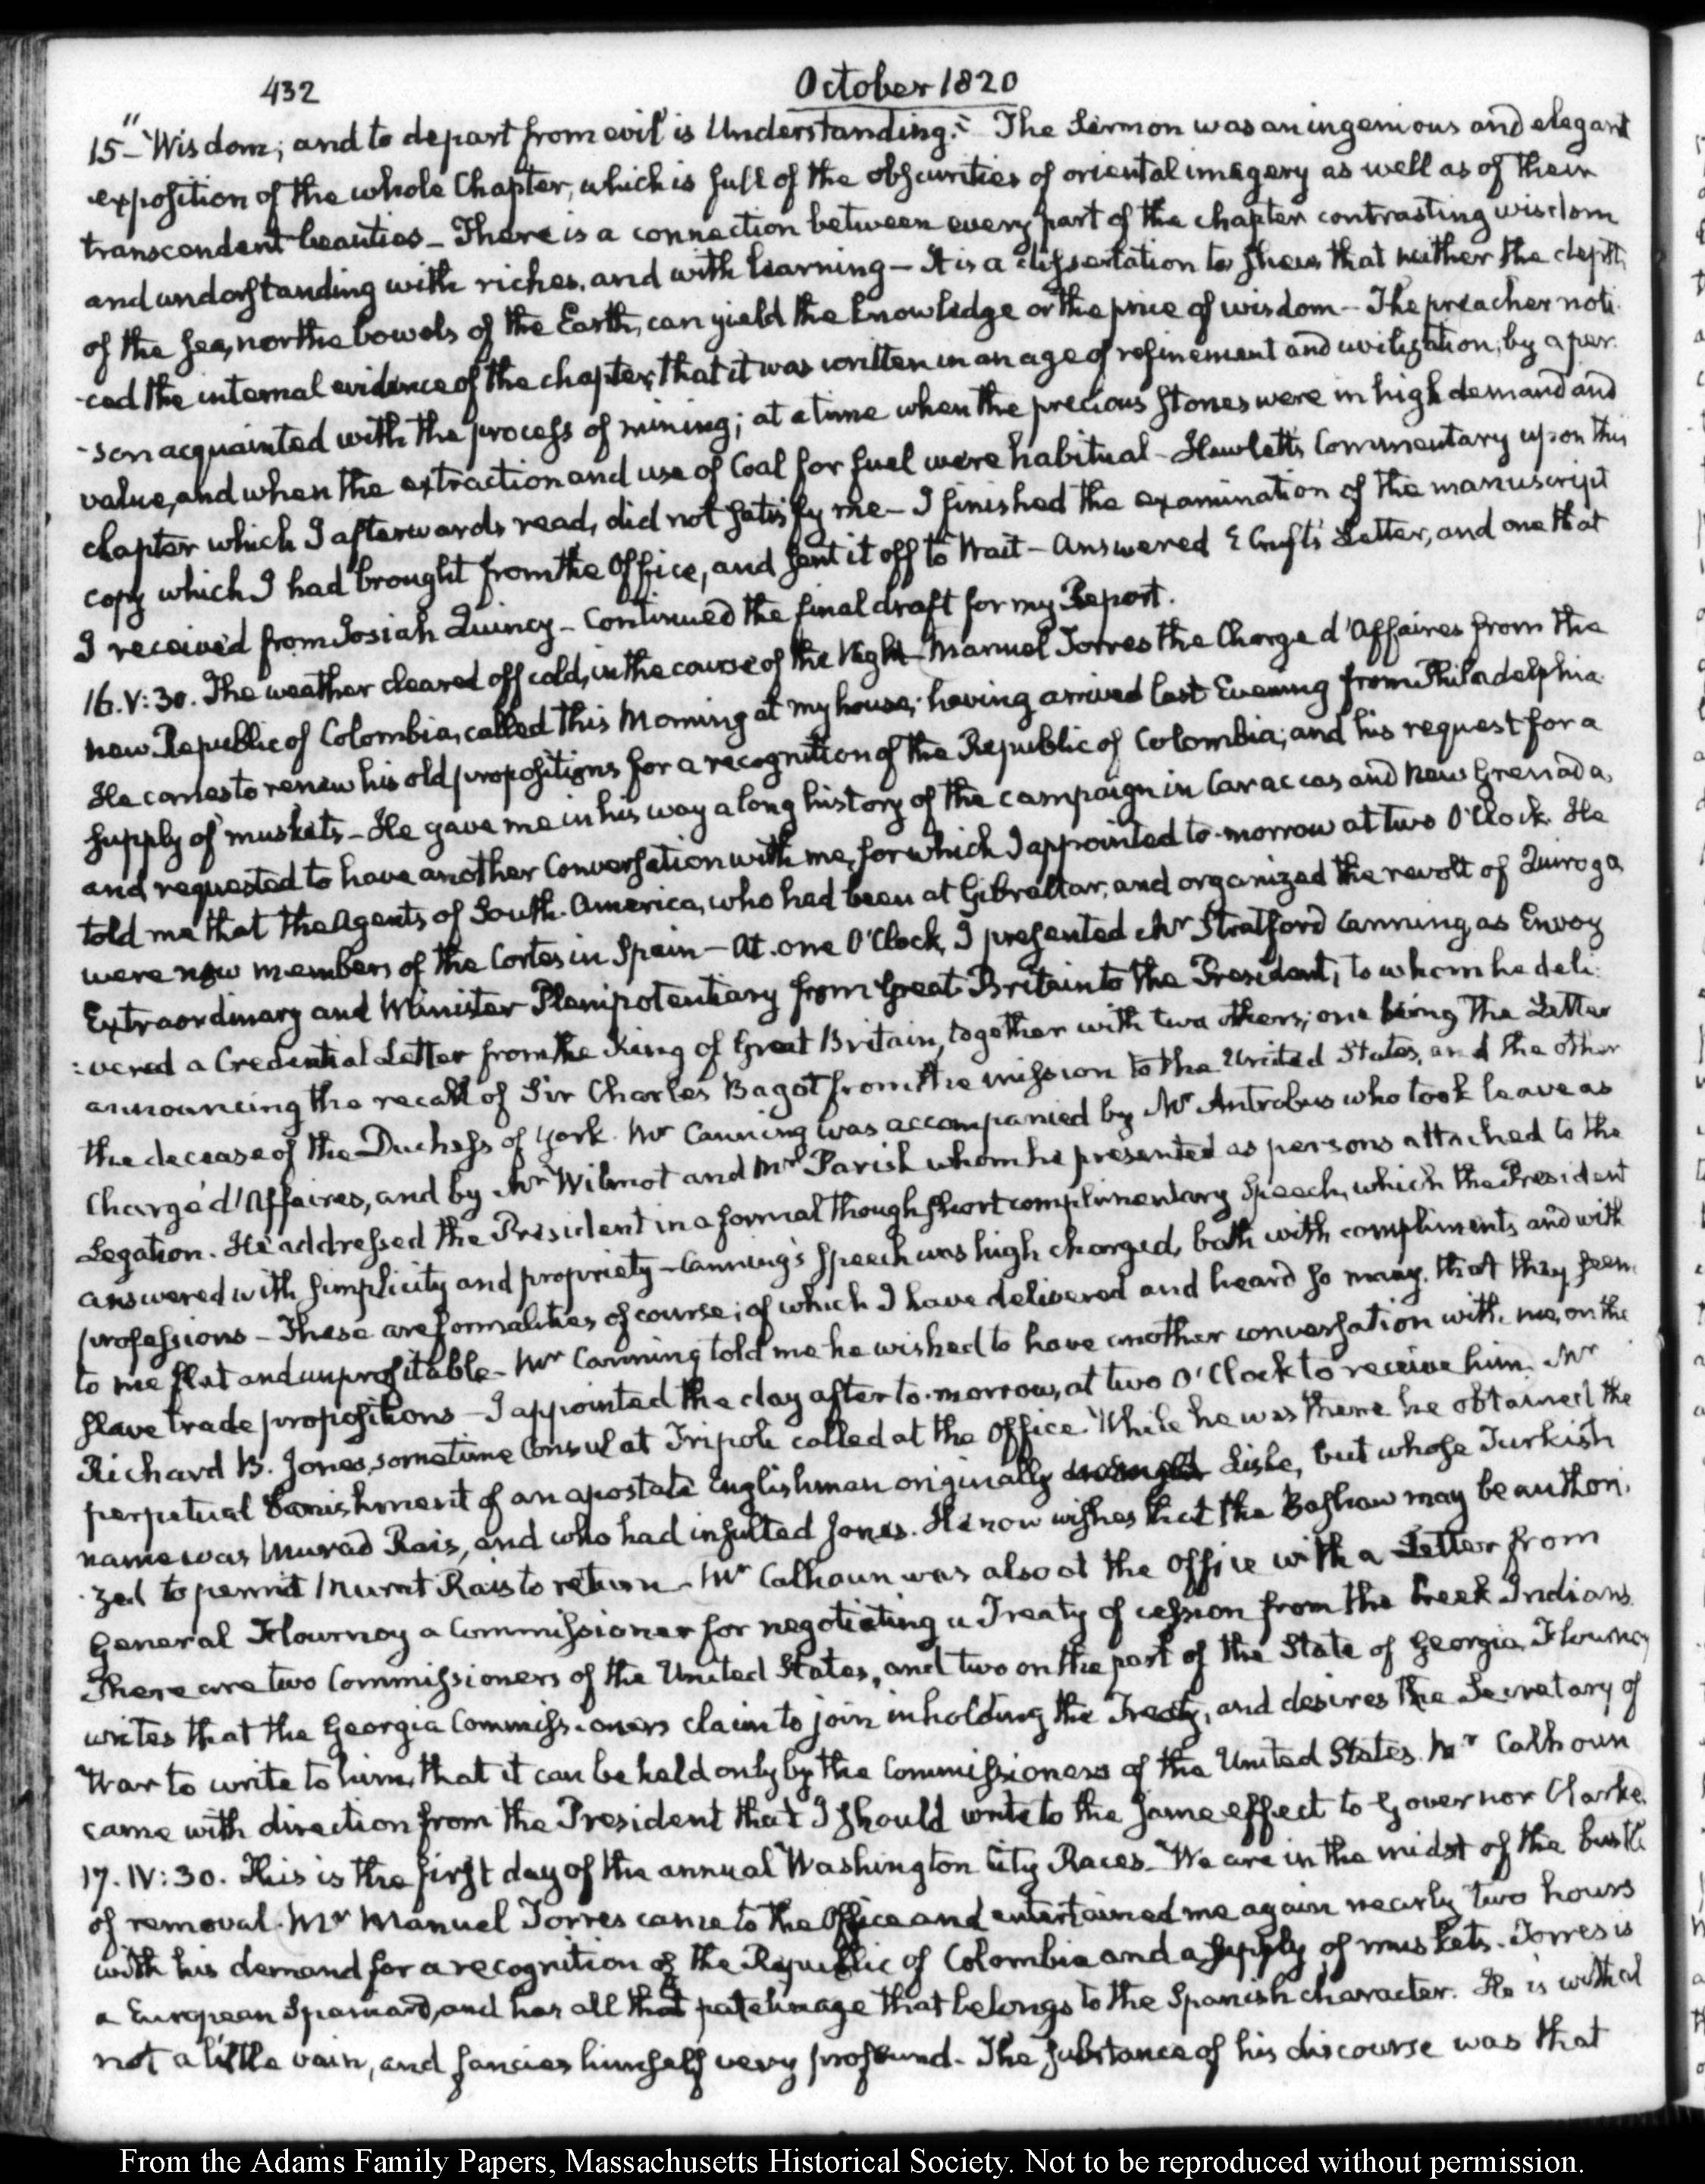 432
October 1820
15– "Wisdom; and to depart from evil is Understanding." The Sermon was an ingenious and elegant
exposition of the whole Chapter, which is full of the obscurities of oriental imagery as well as of their
transcendent beauties – There is a connection between every part of the chapter contrasting wisdom
and understanding with riches, and with learning – It is a dissertation to shew that neither the depth
of the sea, nor the bowels of the Earth, can yield the knowledge or the price of wisdom – The preacher noti-
-ced the internal evidence of the chapter, that it was written in an age of refinement and civilization, by a per-
-son acquainted with the process of mining; at a time when the precious stones were in high demand and
value, and when the extraction and use of Coal for fuel were habitual – Hewlett's Commentary upon this
chapter which I afterwards read, did not satisfy me – I finished the examination of the manuscript
copy which I had brought from the Office, and sent it off to Wait – Answered E Crufts' Letter, and one that
I received from Josiah Quincy – Continued the final draft for my Report.
16. V:30. The weather cleared off cold, in the course of the Night – Manuel Torres the Chargé d'Affaires from the
new Republic of Colombia, called this Morning at my house; having arrived last Evening from Philadelphia.
He comes to renew his old propositions for a recognition of the Republic of Colombia; and his request for a
supply of muskets – He gave me in his way a long history of the campaign in Caraccas and New Grenada,
and requested to have another Conversation with me, for which I appointed to-morrow at two O'Clock. He
told me that the Agents of South-America, who had been at Gibraltar, and organized the revolt of Quiroga,
were now members of the Cortes in Spain – At one O'Clock, I presented Mr Stratford Canning as Envoy
Extraordinary and Minister Plenipotentiary from Great-Britain to the President, to whom he deli:
:vered a Credential Letter from the King of Great Britain, together with two others; one being the Letter
announcing the recall of Sir Charles Bagot from the mission to the United States, and the other
the decease of the Duchess of York. Mr Canning was accompanied by Mr Antrobus who took leave as
Chargé d'Affaires, and by Mr Wilmot and Mr Parish whom he presented as persons attached to the
Legation. He addressed the President in a formal though short complimentary speech, which the President
answered with simplicity and propriety – Canning's speech was high charged, both with compliments and with
professions – These are formalities of course; of which I have delivered and heard so many, that they seem
to me flat and unprofitable – Mr Canning told me he wished to have another conversation with me, on the
slave trade propositions – I appointed the day after to-morrow, at two O'Clock to receive him. Mr
Richard B. Jones, sometime Consul at Tripoli called at the Office. While he was there he obtained the
perpetual banishment of an apostate Englishman originally Lisle, but whose Turkish
name was Murad Rais, and who had insulted Jones. He now wishes that the Bashaw may be authori-
-zed to permit Murat Rais to return – Mr Calhoun was also at the Office with a Letter from
General Flournoy a Commissioner for negotiating a Treaty of cession from the Creek Indians.
There are two Commissioners of the United States, and two on the part of the State of Georgia. Flournoy
writes that the Georgia Commissioners claim to join in holding the Treaty, and desires the Secretary of
War to write to him, that it can be held only by the Commissioners of the United States. Mr Calhoun
came with direction from the President that I should write to the same effect to Governor Clarke.
17. IV:30. This is the first day of the annual Washington City Races. We are in the midst of the bustle
of removal. Mr Manuel Torres came to the Office and entertained me again nearly two hours
with his demand for a recognition of the Republic of Colombia and a supply of muskets. Torres is
a European Spaniard, and has all that patelinage that belongs to the Spanish character. He is withal
not a little vain, and fancies himself very profound. The substance of his discourse was that
From the Adams Family Papers, Massachusetts Historical Society. Not to be reproduced without permission.